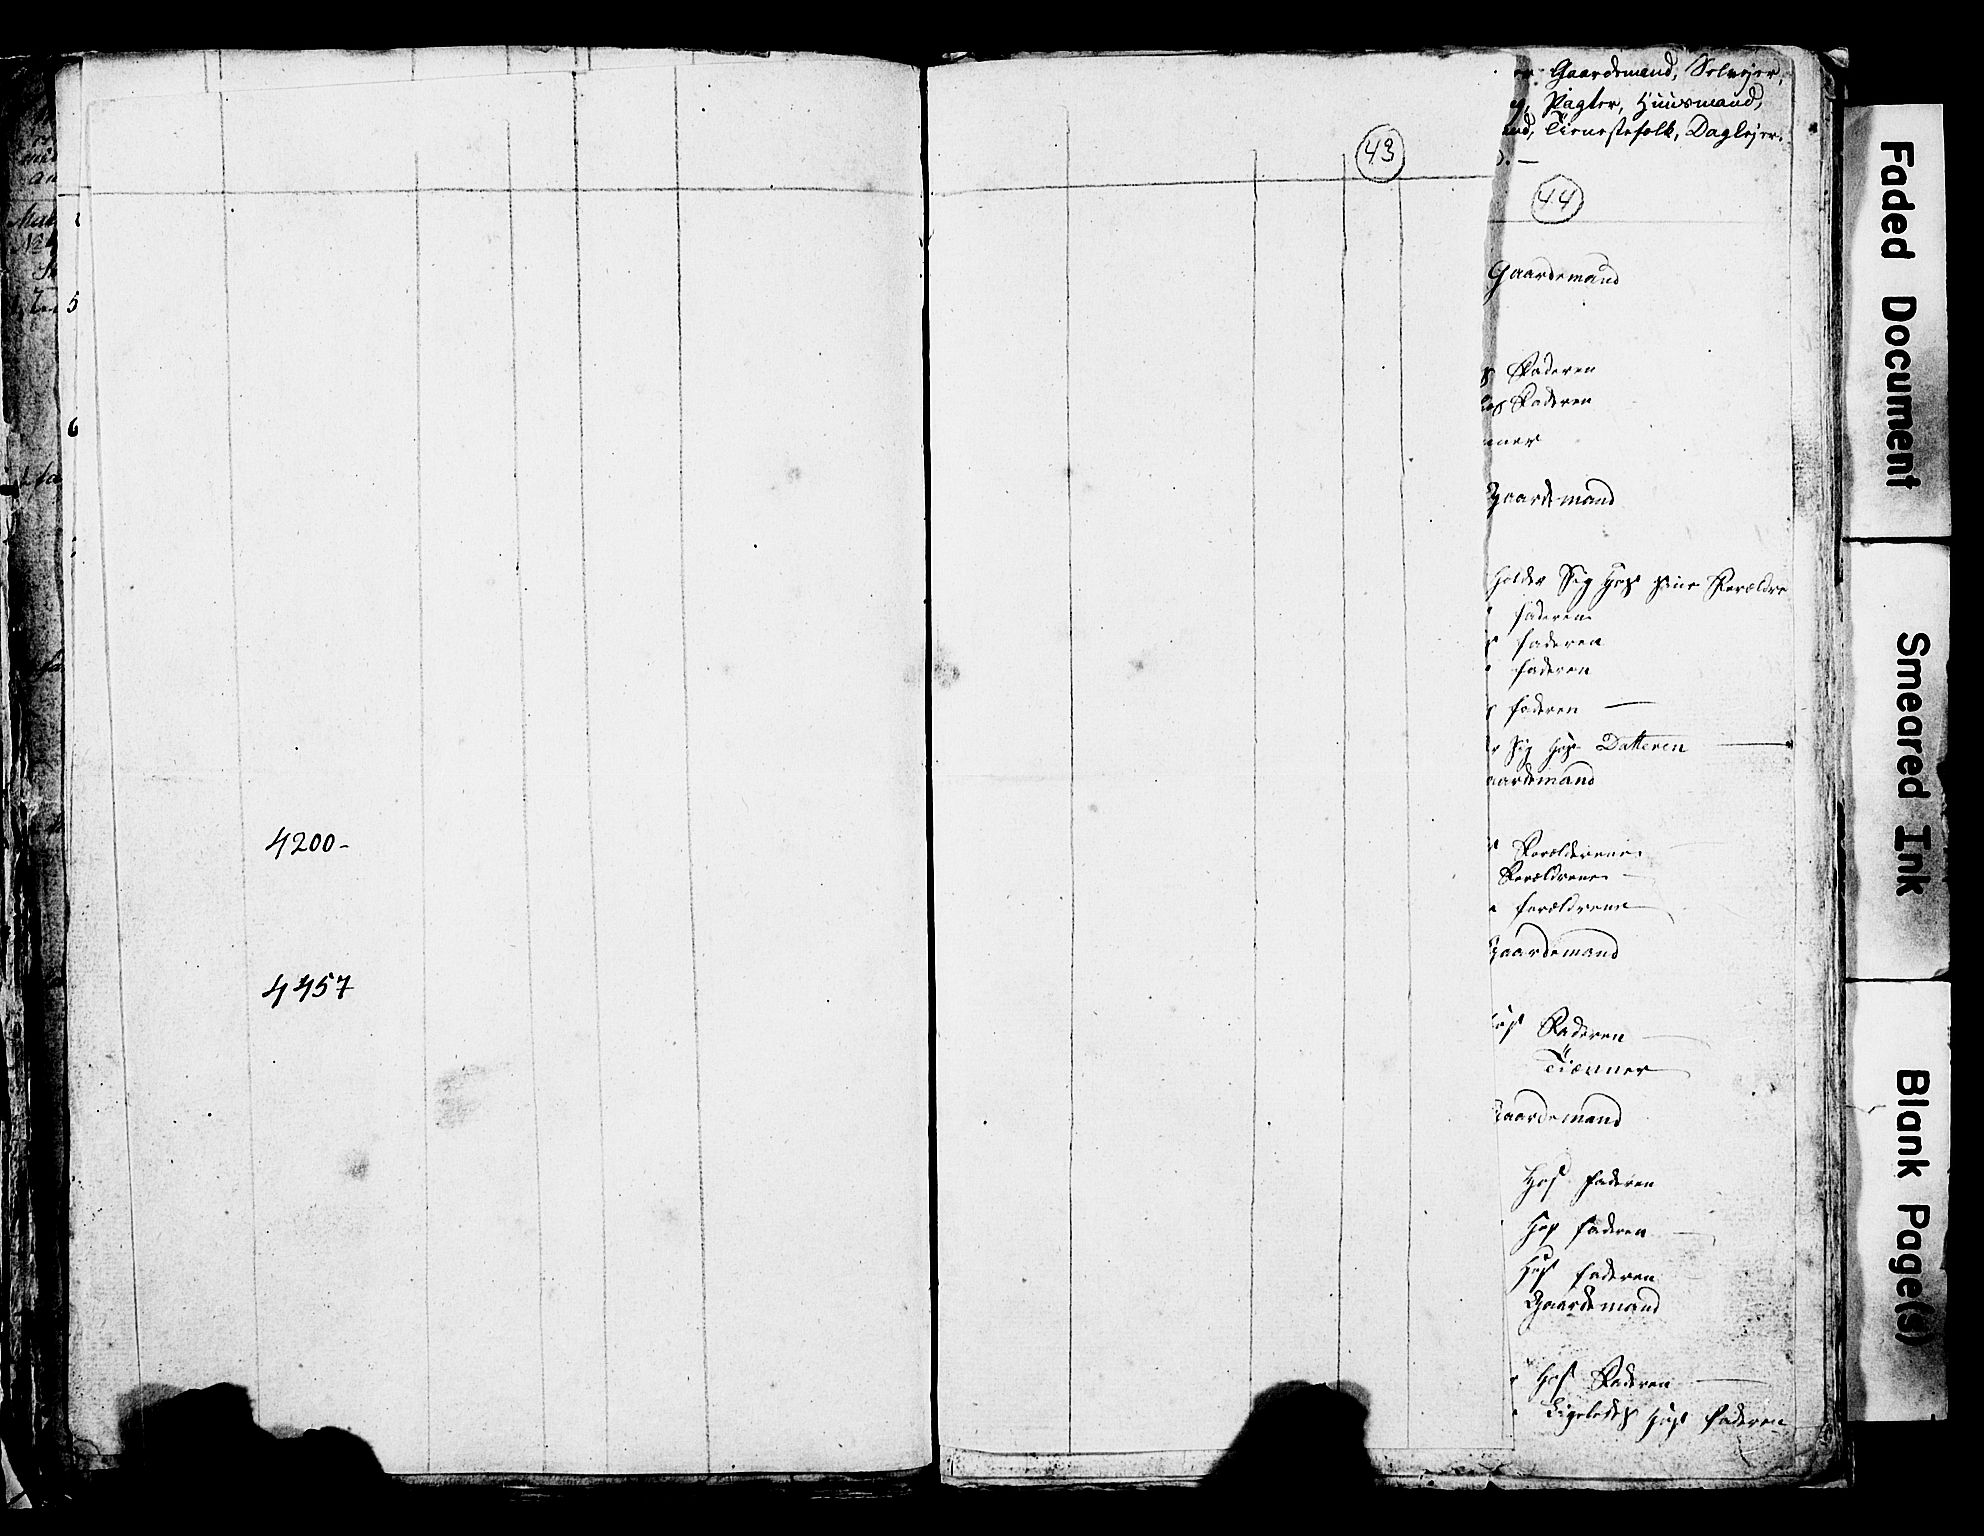 4200-
4457
43
Gaardemand, Selvejer,
Pagter, Huusmand,
Tienestefolk, Daglejer.
44
Gaardemand
Faderen
Faderen
Gaardemand
holder Sig hos sine Forældre
faderen
faderen
faderen
faderen —
Sig hos Datteren —
Forælderene
Forældrene
forældrene
Gaardemand
Faderen
Tiænner
Gaardemand
Hos faderen
Hos faderen
Hos faderen
Gaardemand
Hos Faderen
Ligeledes Hos faderen
Faded Document
Smeared Ink
Blank Page(s)